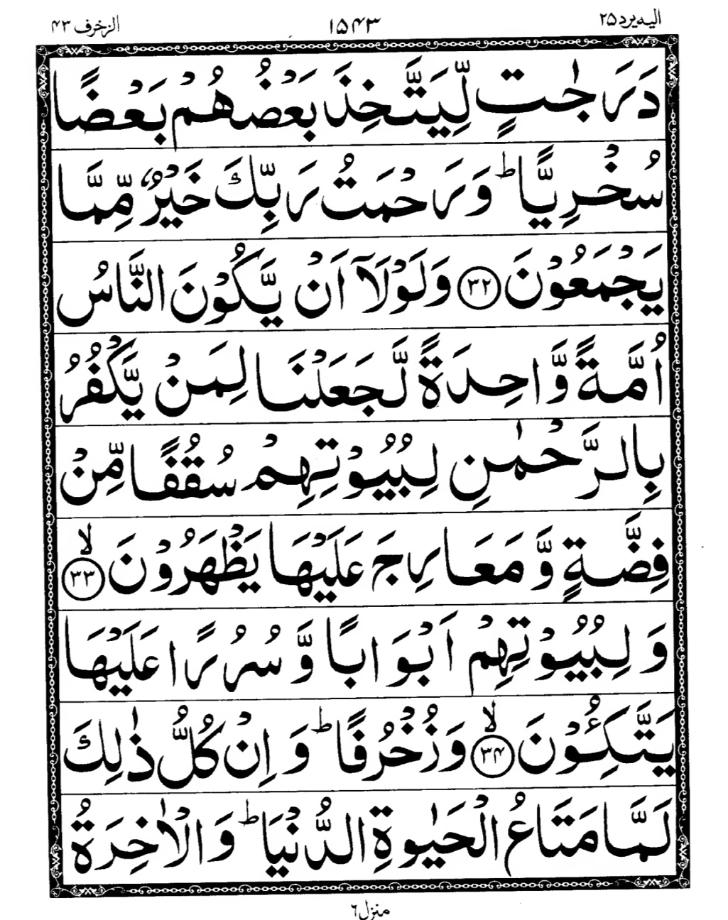 الیه یرد ۲۵ ۱۵۴۳ الزخرف ۴۳
دَرَجٰتٍ لِّیَتَّخِذَ بَعْضُهُمْ بَعْضًا
سُخْرِیًّا ؕ وَرَحْمَتُ رَبِّكَ خَیْرٌ مِّمَّا
یَجْمَعُوْنَ ﴿۳۲﴾ وَلَوْلَاۤ اَنْ یَّكُوْنَ النَّاسُ
اُمَّةً وَّاحِدَةً لَّجَعَلْنَا لِمَنْ یَّكْفُرُ
بِالرَّحْمٰنِ لِبُیُوْتِهِمْ سُقُفًا مِّنْ
فِضَّةٍ وَّ مَعَارِجَ عَلَیْهَا یَظْهَرُوْنَ ۙ﴿۳۳﴾
وَ لِبُیُوْتِهِمْ اَبْوَابًا وَّ سُرُرًا عَلَیْهَا
یَتَّكِـُٔوْنَ ۙ﴿۳۴﴾ وَزُخْرُفًا ؕ وَ اِنْ كُلُّ ذٰلِكَ
لَمَّا مَتَاعُ الْحَیٰوةِ الدُّنْیَا ؕ وَالْاٰخِرَةُ
منزل ۶